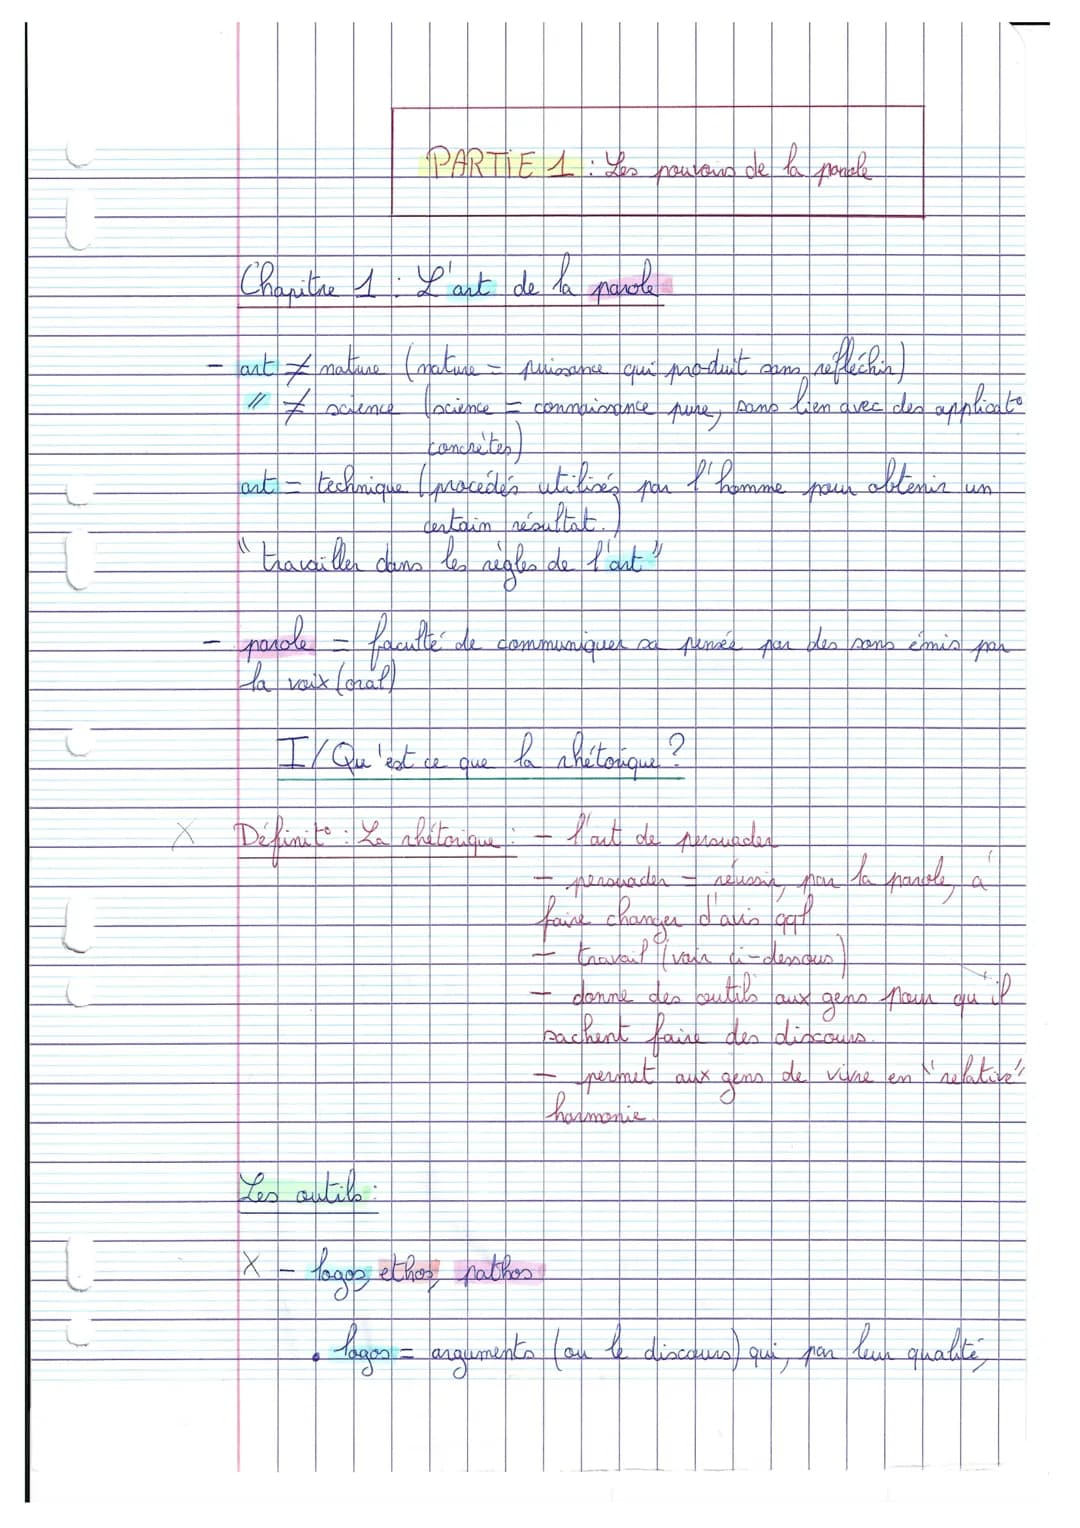 PARTIE 1 : Les pouvoirs de la parole
Chapitre 1 : L'art de la parole
- art ≠ nature (nature = puissance qui produit sans réfléchir)
" ≠ science (science = connaissance pure, sans lien avec des applicat°
concrètes)
art = technique (procédés utilisés par l'homme pour obtenir un
certain résultat.)
"travailler dans les règles de l'art"
- parole = faculté de communiquer sa pensée par des sons émis par
la voix (oral)
I/ Qu'est ce que la rhétorique ?
X Définit° : La rhétorique : - l'art de persuader
- persuader = réussir, par la parole, à
faire changer d'avis qqf
- travail (voir ci-dessous)
- donne des outils aux gens pour qu'il
sachent faire des discours.
- permet aux gens de vivre en "relative"
harmonie.
Les outils :
X - logos, ethos, pathos
• logos = arguments (ou le discours) qui, par leur qualité,